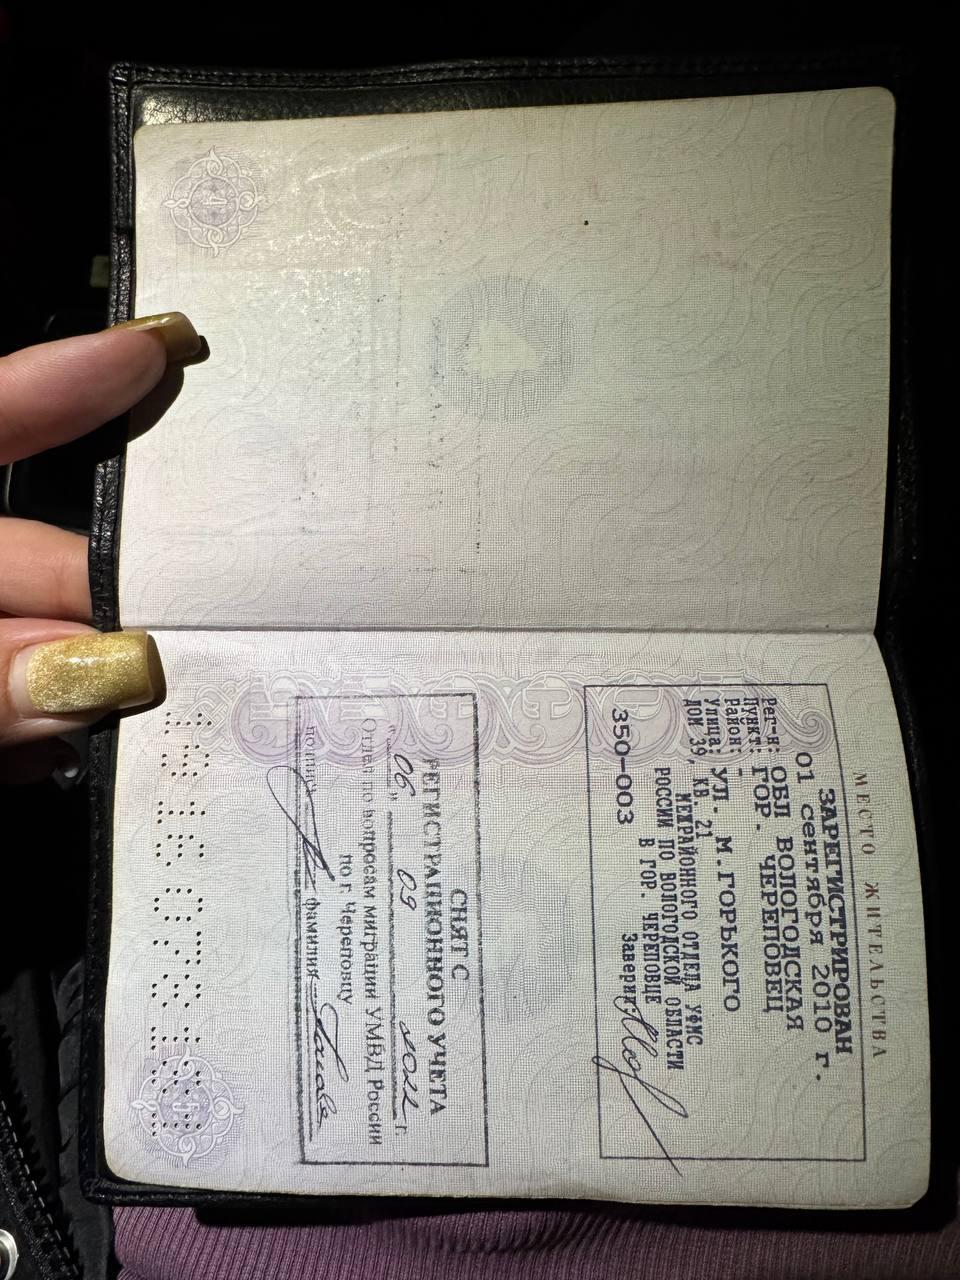 МЕСТО ЖИТЕЛЬСТВА
ЗАРЕГИСТРИРОВАН
01 сентября 2010 г.
Рег-н: ОБЛ ВОЛОГОДСКАЯ
Пункт: ГОР. ЧЕРЕПОВЕЦ
Район: -
Улица: УЛ. М.ГОРЬКОГО
дом 39, кв. 21
МЕЖРАЙОННОГО ОТДЕЛА УФМС
РОССИИ ПО ВОЛОГОДСКОЙ ОБЛАСТИ
В ГОР. ЧЕРЕПОВЦЕ
350-003 Заверил
СНЯТ С
РЕГИСТРАЦИОННОГО УЧЕТА
"06" 09 г.
Отдел по вопросам миграции УМВД России
по г. Череповцу
подпись фамилия